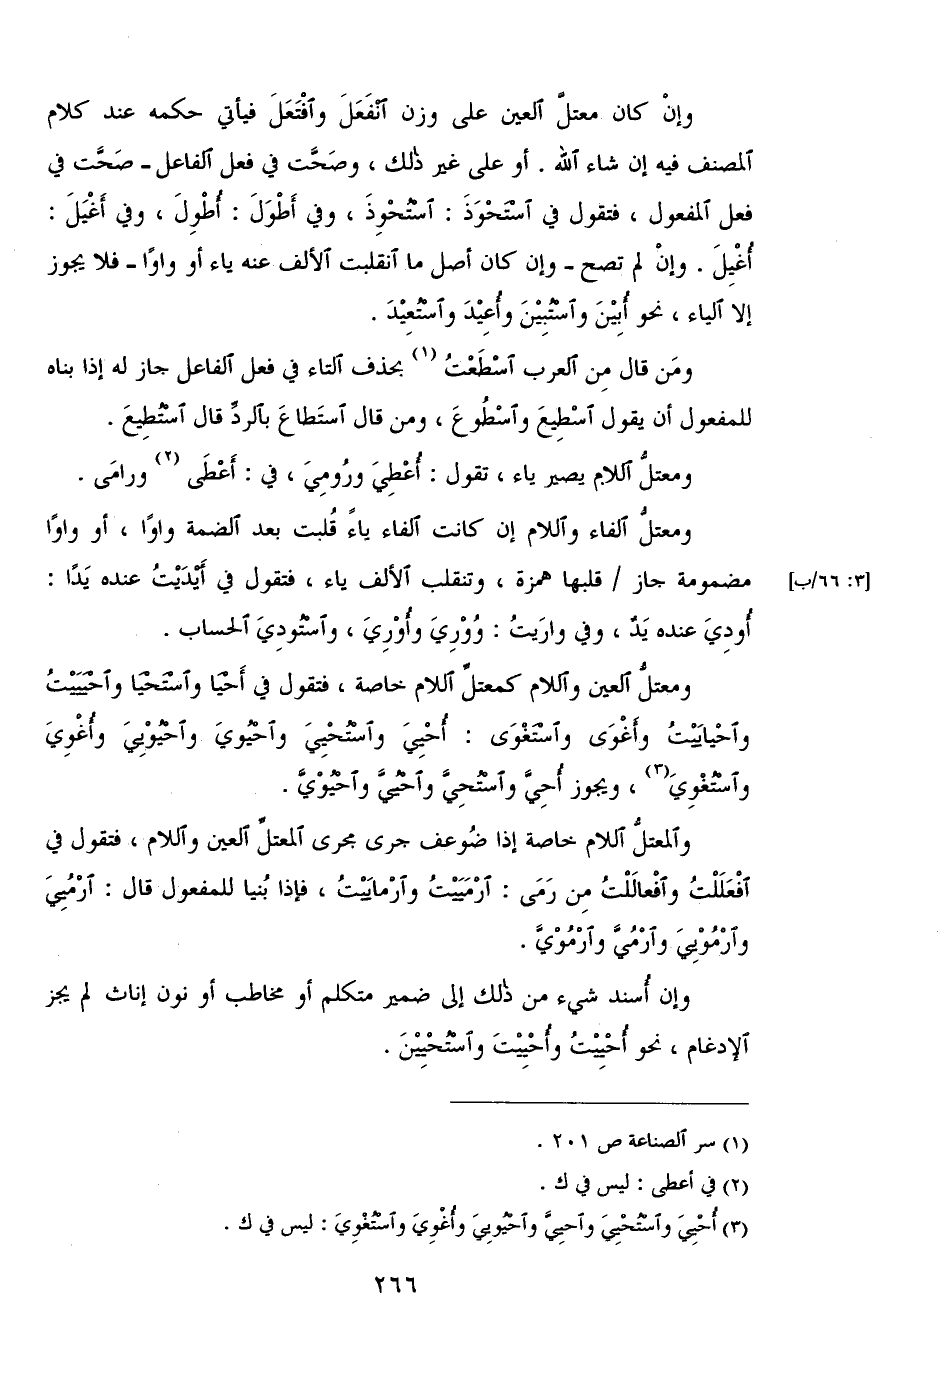 وإنْ كان معتلَّ ٱلعين على وزن ٱنْفَعَلَ وٱفْتَعَلَ فيأتي حكمه عند كلام
ٱلمصنف فيه إن شاء ٱلله . أو على غير ذٰلك ، وصَحَّت في فعل ٱلفاعل ـ صَحَّت في
فعل ٱلمفعول ، فتقول في ٱسْتَحْوَذَ : ٱسْتُحْوِذَ ، وفي أَطْوَلَ : أُطْوِلَ ، وفي أَغْيَلَ :
أُغْيِلَ . وإنْ لم تصح ـ وإن كان أصل ما ٱنقلبت ٱلألف عنه ياء أو واوًا ـ فلا يجوز
إلا ٱلياء ، نحو أُبِيْنَ وٱسْتُبِيْنَ وأُعِيْدَ وٱسْتُعِيْدَ .
ومَن قال مِن ٱلعرب ٱسْطَعْتُ (١) بحذف ٱلتاء في فعل ٱلفاعل جاز له إذا بناه
للمفعول أن يقول ٱسْطِيعَ وٱسْطُوعَ ، ومن قال ٱستَطاعَ بٱلردِّ قال ٱسْتُطِيعَ .
ومعتلُّ ٱللام يصير ياء ، تقول : أُعْطِيَ ورُومِيَ ، في : أَعْطَى (٢) ورامَى .
ومعتلُّ ٱلفاء وٱللام إن كانت ٱلفاء ياءً قُلبت بعد ٱلضمة واوًا ، أو واوًا
مضمومة جاز / قلبها همزة ، وتنقلب ٱلألف ياء ، فتقول في أَيْدَيْتُ عنده يَدًا : [٣: ٦٦/ب]
أُودِيَ عنده يَدٌ ، وفي وارَيتُ : وُوْرِيَ وأُوْرِيَ ، وٱسْتُودِيَ ٱلحساب .
ومعتلُّ ٱلعين وٱللام كمعتلِّ ٱللام خاصة ، فتقول في أَحْيَا وٱسْتَحْيَا وٱحْيَيَيْتُ
وٱحْيايَيْتُ وأَغْوَى وٱسْتَغْوَى : أُحْيِيَ وٱسْتُحْيِيَ وٱحْيُويَ وٱحْيُوْيِيَ وأُغْوِيَ
وٱسْتُغْوِيَ(٣) ، ويجوز أُحِيَّ وٱسْتُحِيَّ وٱحْيُيَّ وٱحْيُوْيَّ .
وٱلمعتلُّ ٱللام خاصة إذا ضُوعف جرى مجرى ٱلمعتلِّ ٱلعين وٱللام ، فتقول في
ٱفْعَلَلْتُ وٱفْعالَلْتُ مِن رَمَى : ٱرْمَيَيْتُ وٱرْمايَيْتُ ، فإذا بُنيا للمفعول قال : ٱرْمُيِيَ
وٱرْمُوْيِيَ وٱرْمُيَّ وٱرْمُوْيَّ .
وإن أُسند شيء من ذٰلك إلى ضمير متكلم أو مخاطب أو نون إناث لم يجز
ٱلإدغام ، نحو أُحْيِيْتُ وأُحْيِيْتَ وٱسْتُحْيِيْنَ .
(١) سر ٱلصناعة ص ٢٠١ .
(٢) في أعطى : ليس في ك .
(٣) أُحْيِيَ وٱسْتُحْيِيَ وٱحيِيَّ وٱحْيُوييَ وأُغْوِيَ وٱسْتُغْوِيَ : ليس في ك .
٢٦٦